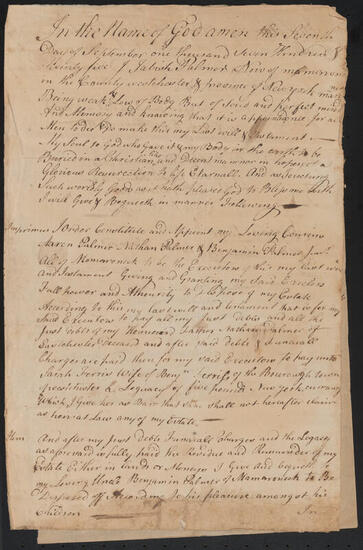 In the Name of God amen this Seventh
Day of September one thousand Seven Hundred &
Seventy five I Palmer Now of mamaroneck
in the County westchester & province of New york
Being weak & Low of Body But of Sound and perfect mind
and Memory and knowing that it is appointed for all
Men to die Do make this my Last will & Testament
My Soul to God who Gave it & my Body to the earth to be
Buried in a Christian like and Decent manner in hopes of a
Glorious Resurrection to Life Eternall And as touching
Such worldly Goods as it hath pleased God to Bless me with
I will Give & Bequeath in manner following
Imprimis I Order Constitute and Appoint my Loving Cousens
Aaren Palmer Nathan Palmer & Benjamin Palmer Junr
All of Mamaroneck to be the Executors of this my last will
and testament Giving and Granting my Said Executors
full power and Authority to dispose of my Estate
According to this my last will and testament that is for my
Said Executors to pay all my Just debts and all the
Just debts of my Honoured father Nathan Palmer of
westchester Deceased and after said debts & funarall
Charges are paid then for my said Executors to pay unto
Sarah Ferris Wife of Benjn Ferris of the Bourrough town
of westchester a Legacy of five pounds New york curancy
which I give her as Barr that She Shall not hereafter Claim
as heir at Law any of my Estate
Item And after my Just Debts funarall Charges and the Legacy
as aforesaid is fully paid the Residue and Remainder of my
Estate Either in lands or Moneys I Give And Bequeath
my Loveing Uncle Benjamin Palmer of Mamaroneck to Be
Disposed of According to his pleasure amongst his
Children
In